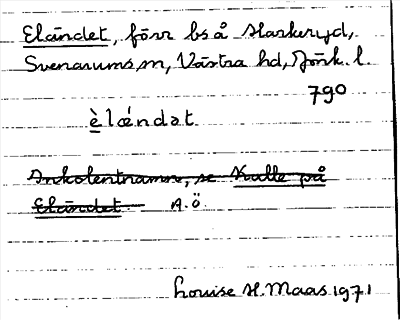 Eländet, förr bs å Harkeryd,
Svenarums sn, Västra hd, Jönk. l.
790
èlǽndət
Inkolentnamn, se Kulle på
Eländet A.Ö.
Louise H. Maas 1971